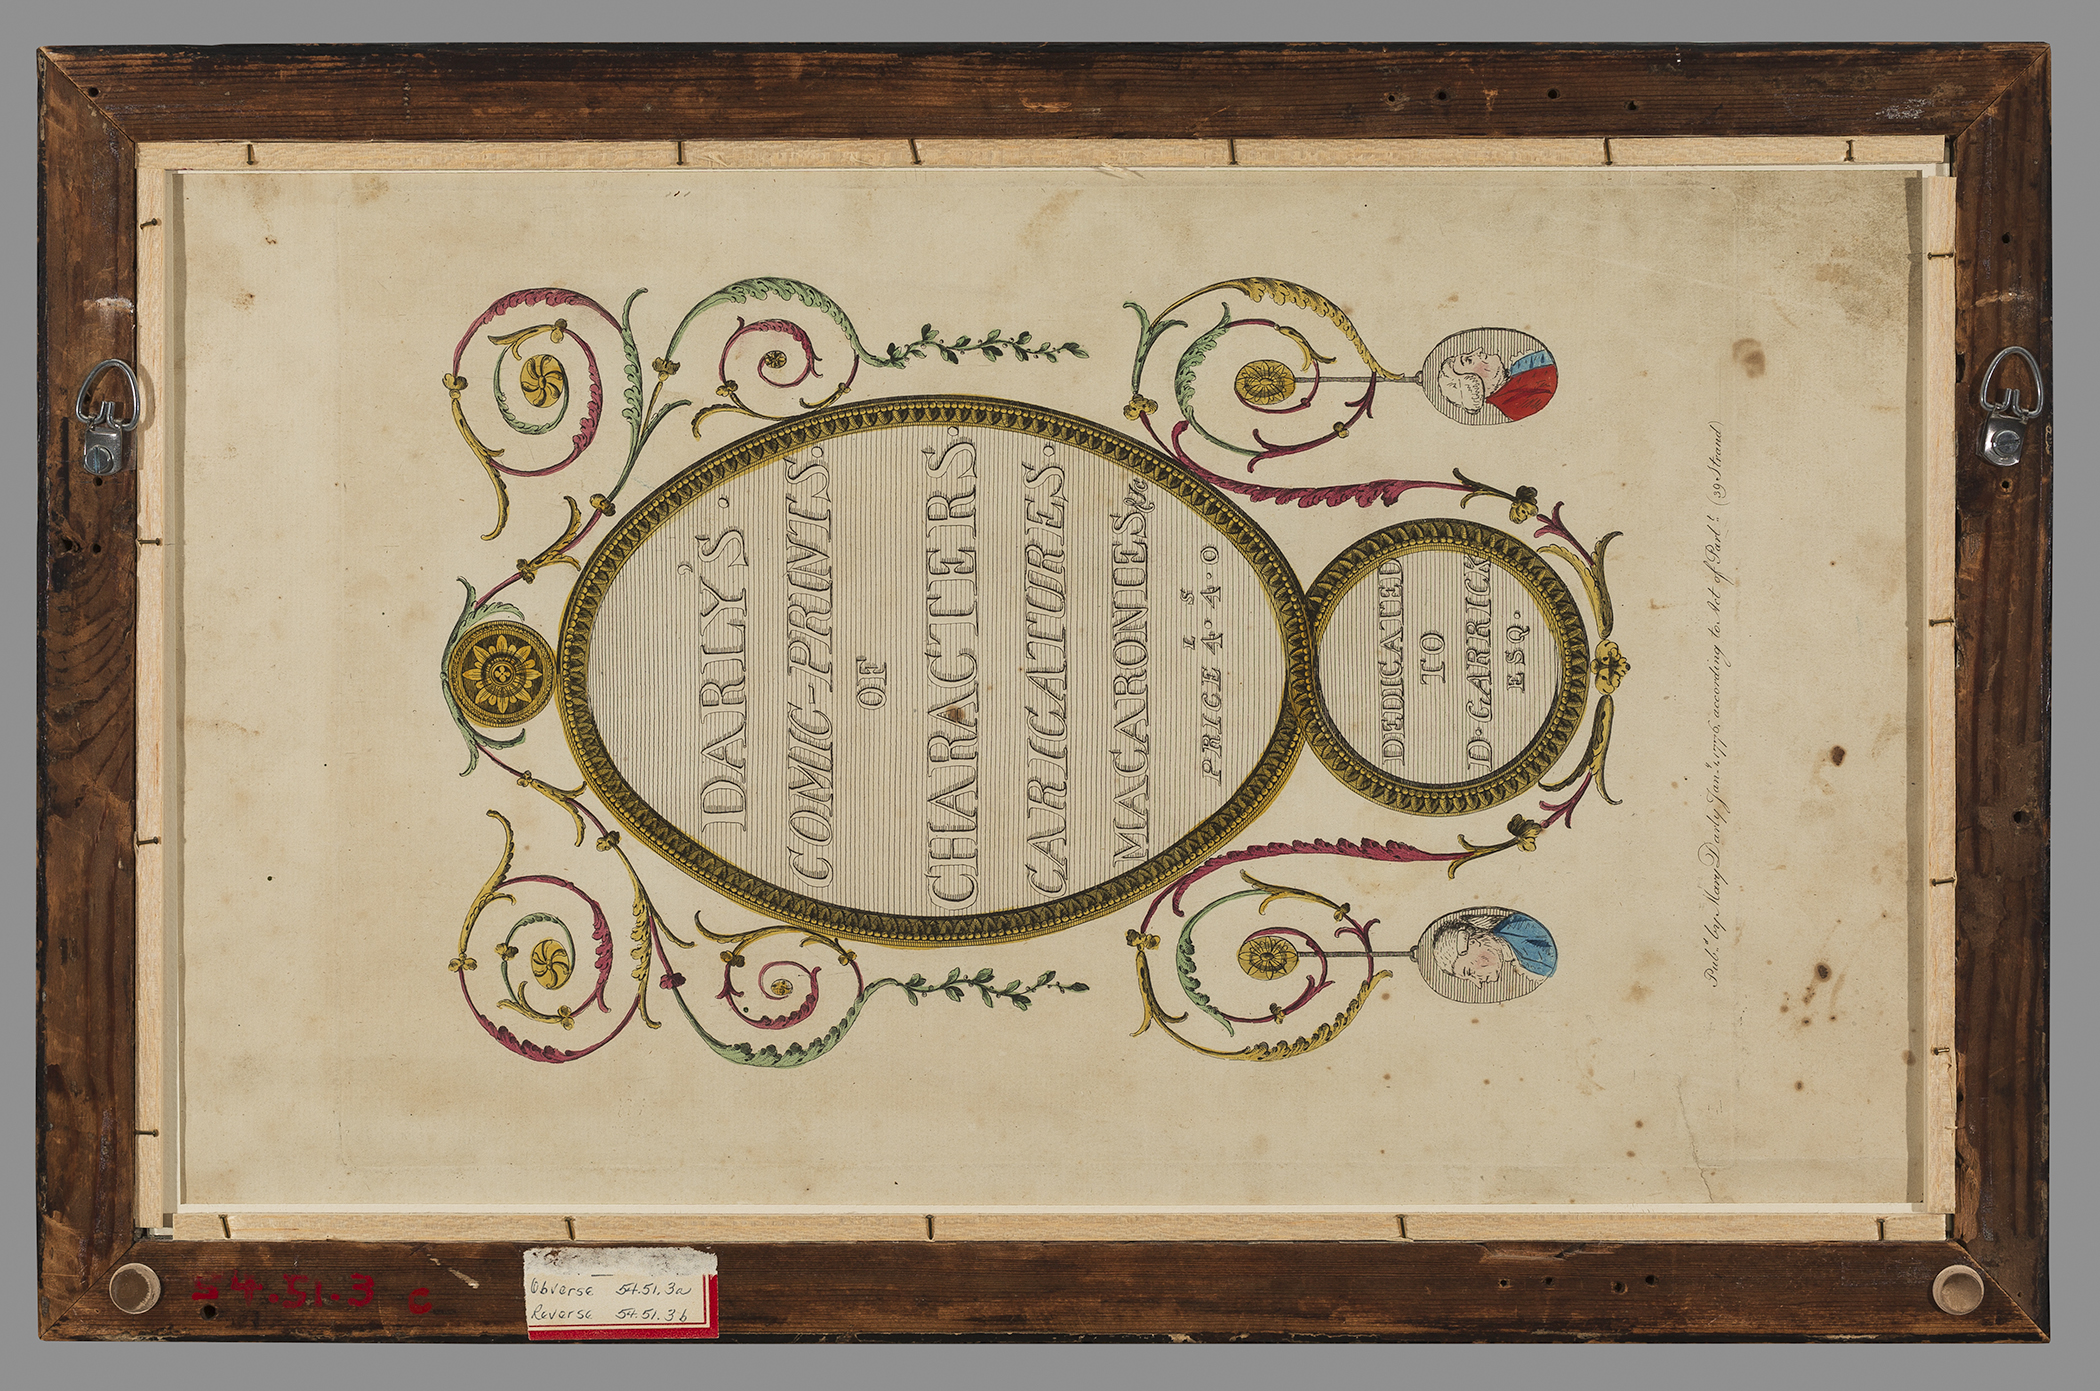 DARLY'S.
COMIC-PRINTS.
OF
CHARACTERS.
CARICATURES.
MACARONIES &c
L S
PRICE 4.4.0
DEDICATED
TO
D. GARRICK
ESQ.
Pub.d by Mary Darly Jan.y 1, 1776, according to Act of Parl.t (39 Strand)
54.51.3 c
Obverse 54.51.3a
Reverse 54.51.3b